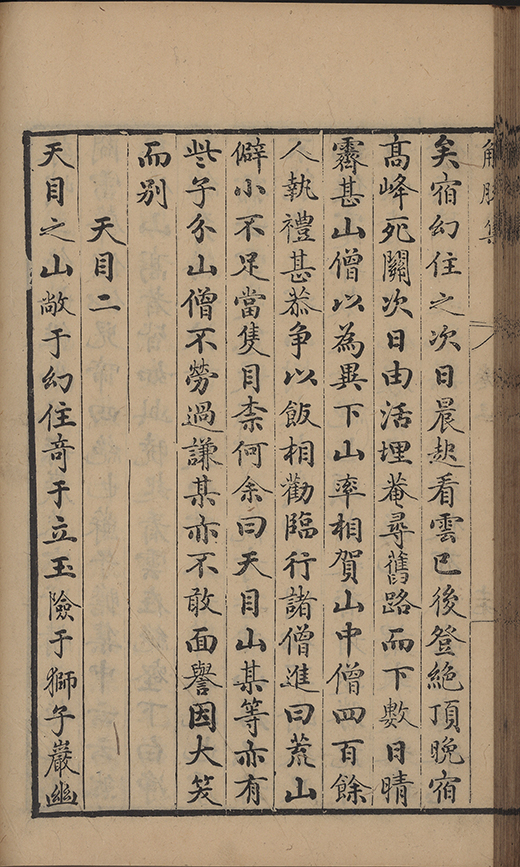 解脫集
矣宿幻住之次日晨起看雲巳後登絶頂晚宿
高峰死關次日由活埋菴尋舊路而下數日晴
霽甚山僧以為異下山率相賀山中僧四百餘
人執禮甚恭争以飯相勸臨行諸僧進曰荒山
僻小不足當隻目柰何余曰天目山某等亦有
些子分山僧不勞過謙某亦不敢面譽因大笑
而别
天目二
天目之山敞于幻住竒于立玉險于獅子巖幽